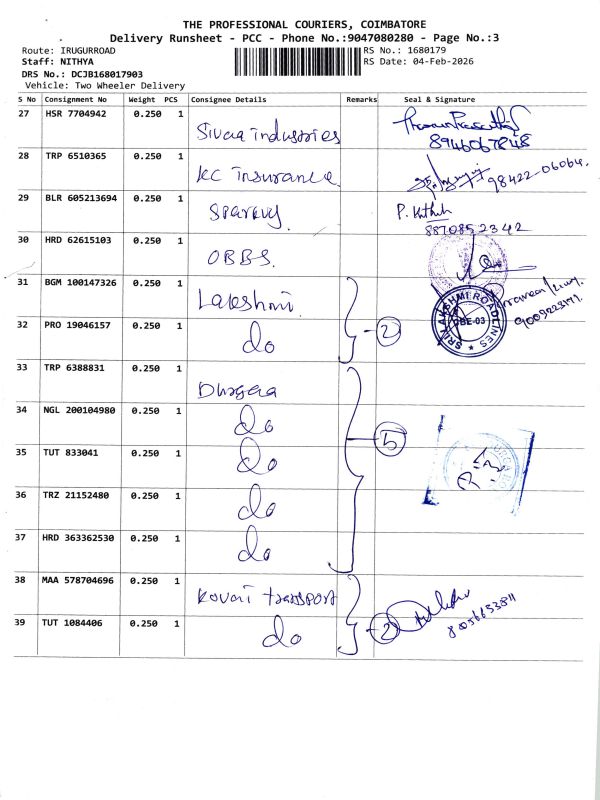 THE PROFESSIONAL COURIERS, COIMBATORE
Delivery Runsheet - PCC - Phone No.:9047080280 - Page No.:3
Route: IRUGURROAD
RS No.: 1680179
Staff: NITHYA
RS Date: 04-Feb-2026
DRS No.: DCJB168017903
Vehicle: Two Wheeler Delivery
S No Consignment No Weight PCS Consignee Details Remarks Seal & Signature
27 HSR 7704942 0.250 1 Sivaa industries
8946067848
28 TRP 6510365 0.250 1 KC insurance
98422 06064.
29 BLR 605213694 0.250 1 P. Kuthik
8870852342
30 HRD 62615103 0.250 1 OBBS.
31 BGM 100147326 0.250 1 Lakshmi
SRI LAKSHMI ROADLINES
CBE-03
32 PRO 19046157 0.250 1 do 2
33 TRP 6388831 0.250 1
34 NGL 200104980 0.250 1 do
5
35 TUT 833041 0.250 1 do
36 TRZ 21152480 0.250 1 do
37 HRD 363362530 0.250 1 do
38 MAA 578704696 0.250 1 Kovai transport
39 TUT 1084406 0.250 1 do 2